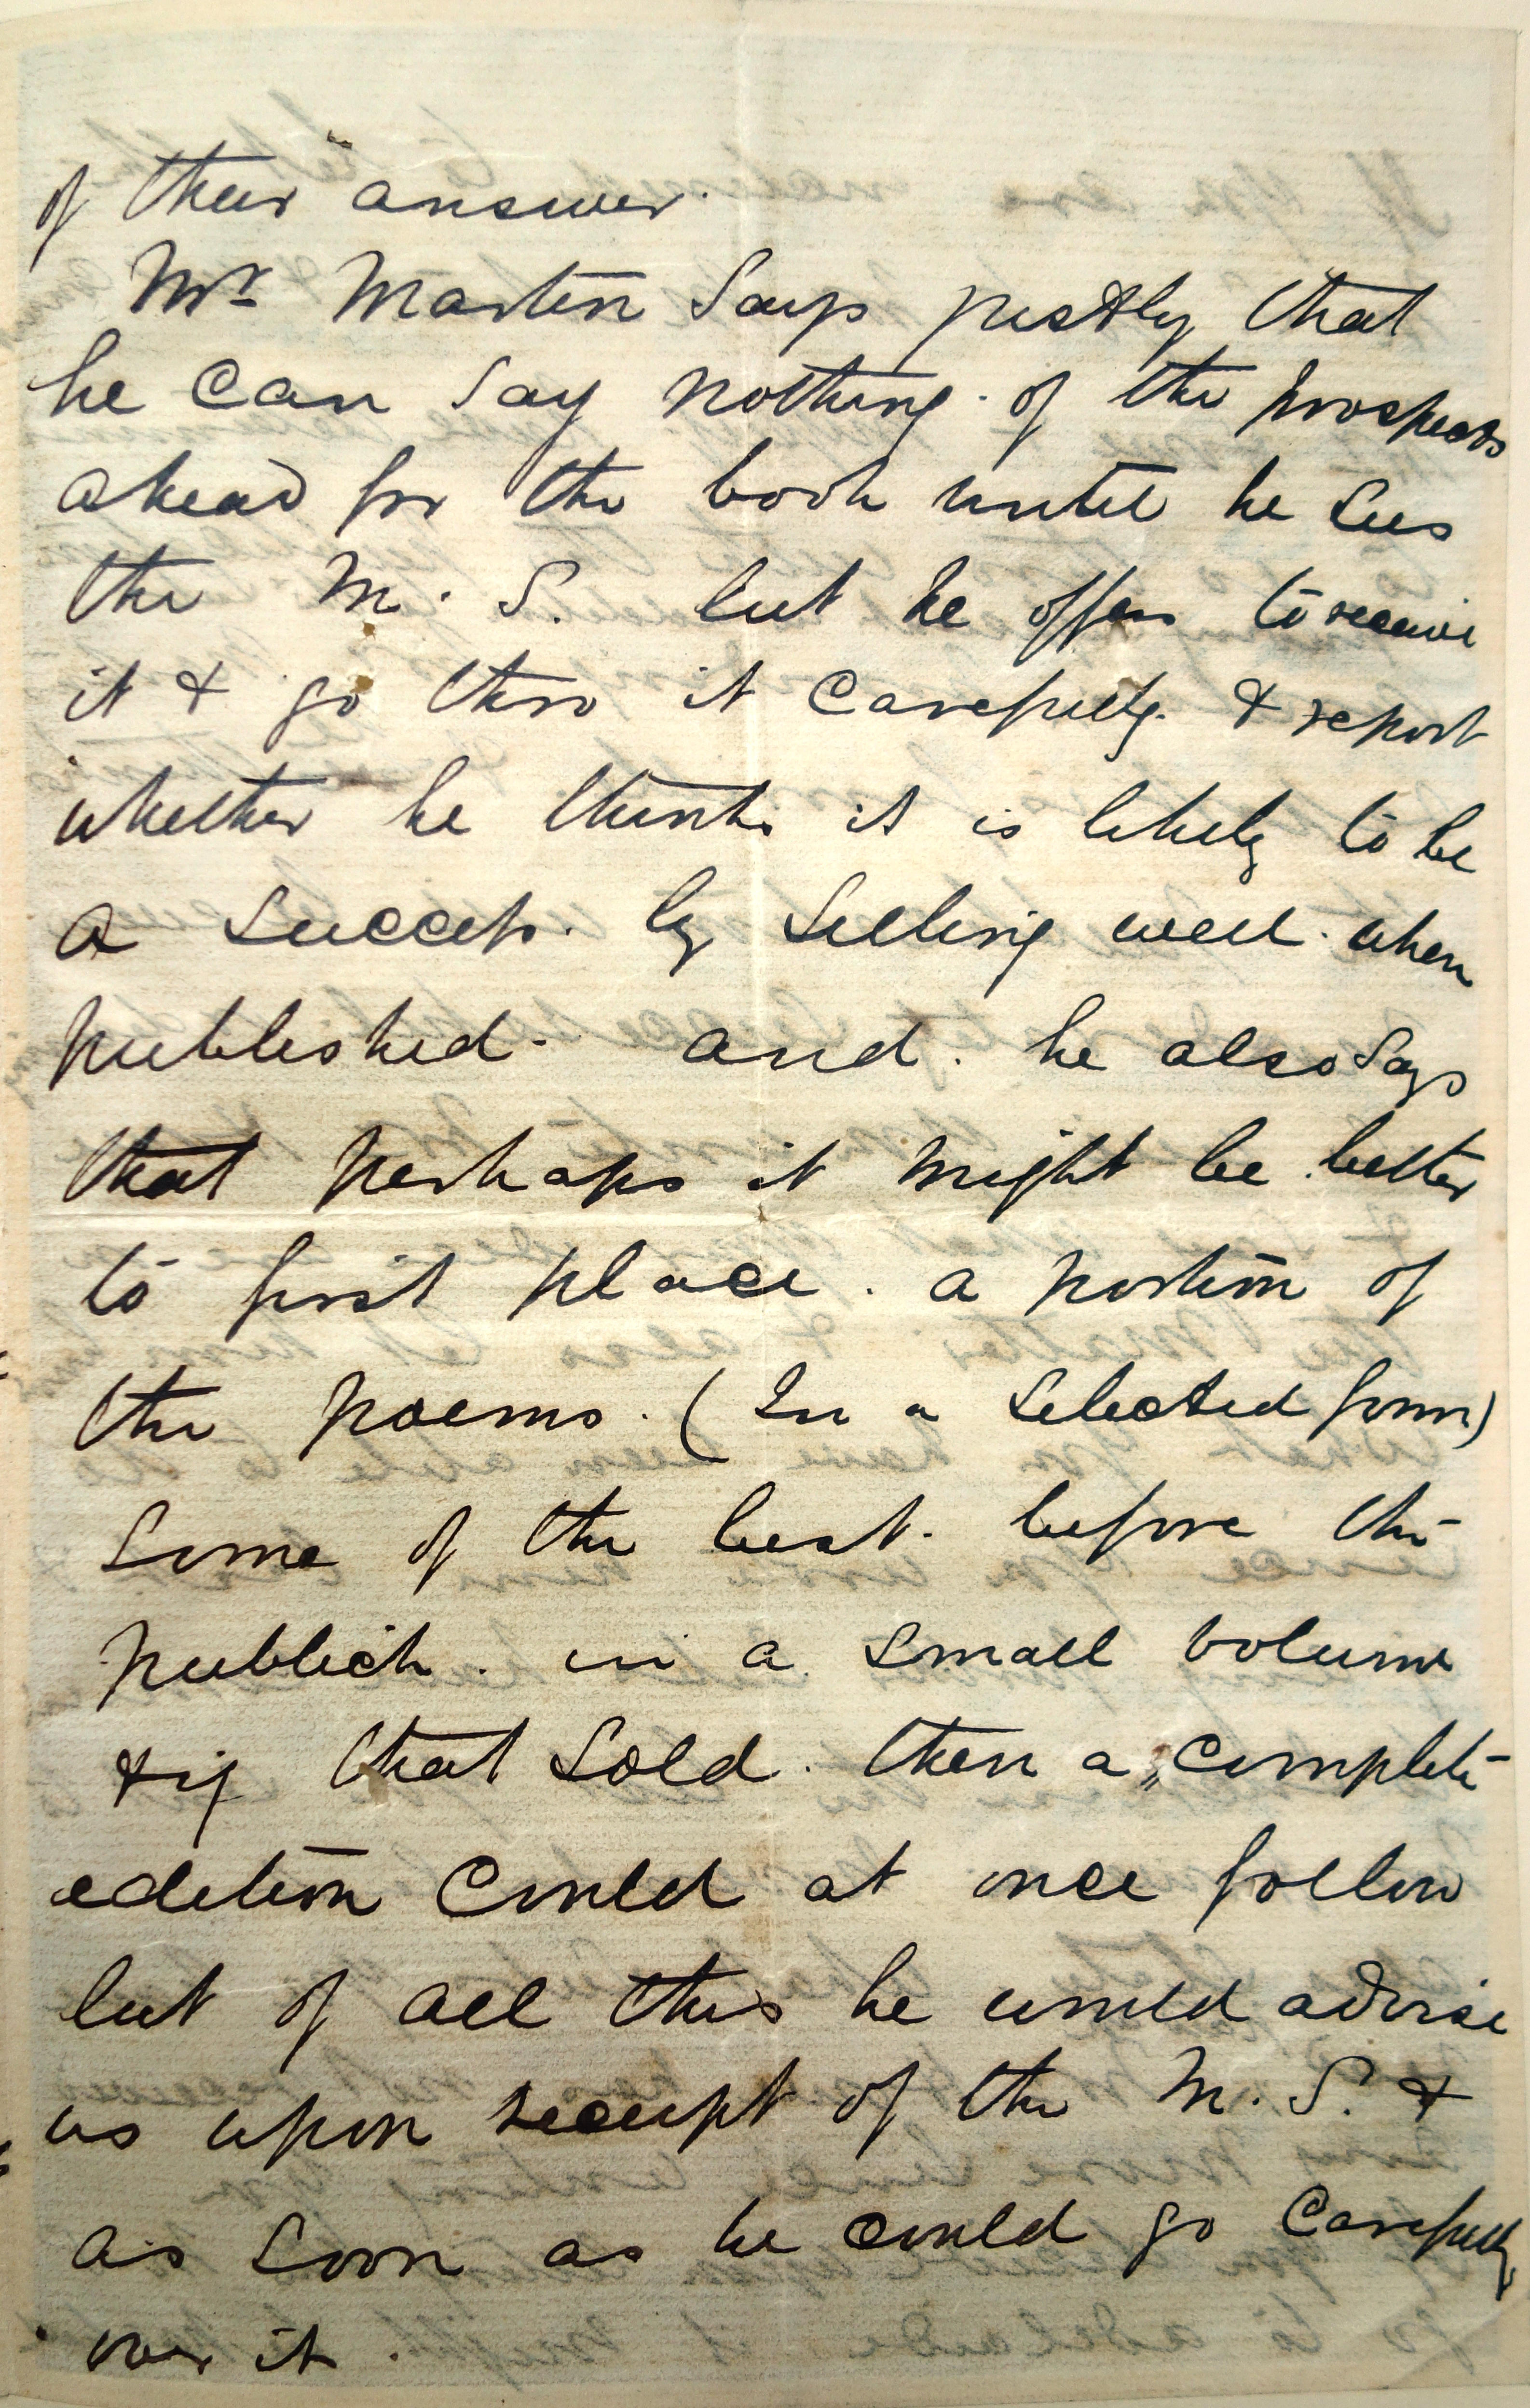 of their answer.
Mr Marten Says justly that
he can say nothing of the prospects
ahead for the book until he sees
the M. S. but he offers to receive
it & go thro it carefully & report
whether he thinks it is likely to be
a success. by selling well when
published. and he also says
that perhaps it might be better
to first place a portion of
the poems. (In a selected form)
Some of the best. before the
publick. in a small volume
& if that sold. then a complete
edition could at once follow
but of all this he would advise
us upon receipt of the M. S. &
as soon as he could go carefully
over it.